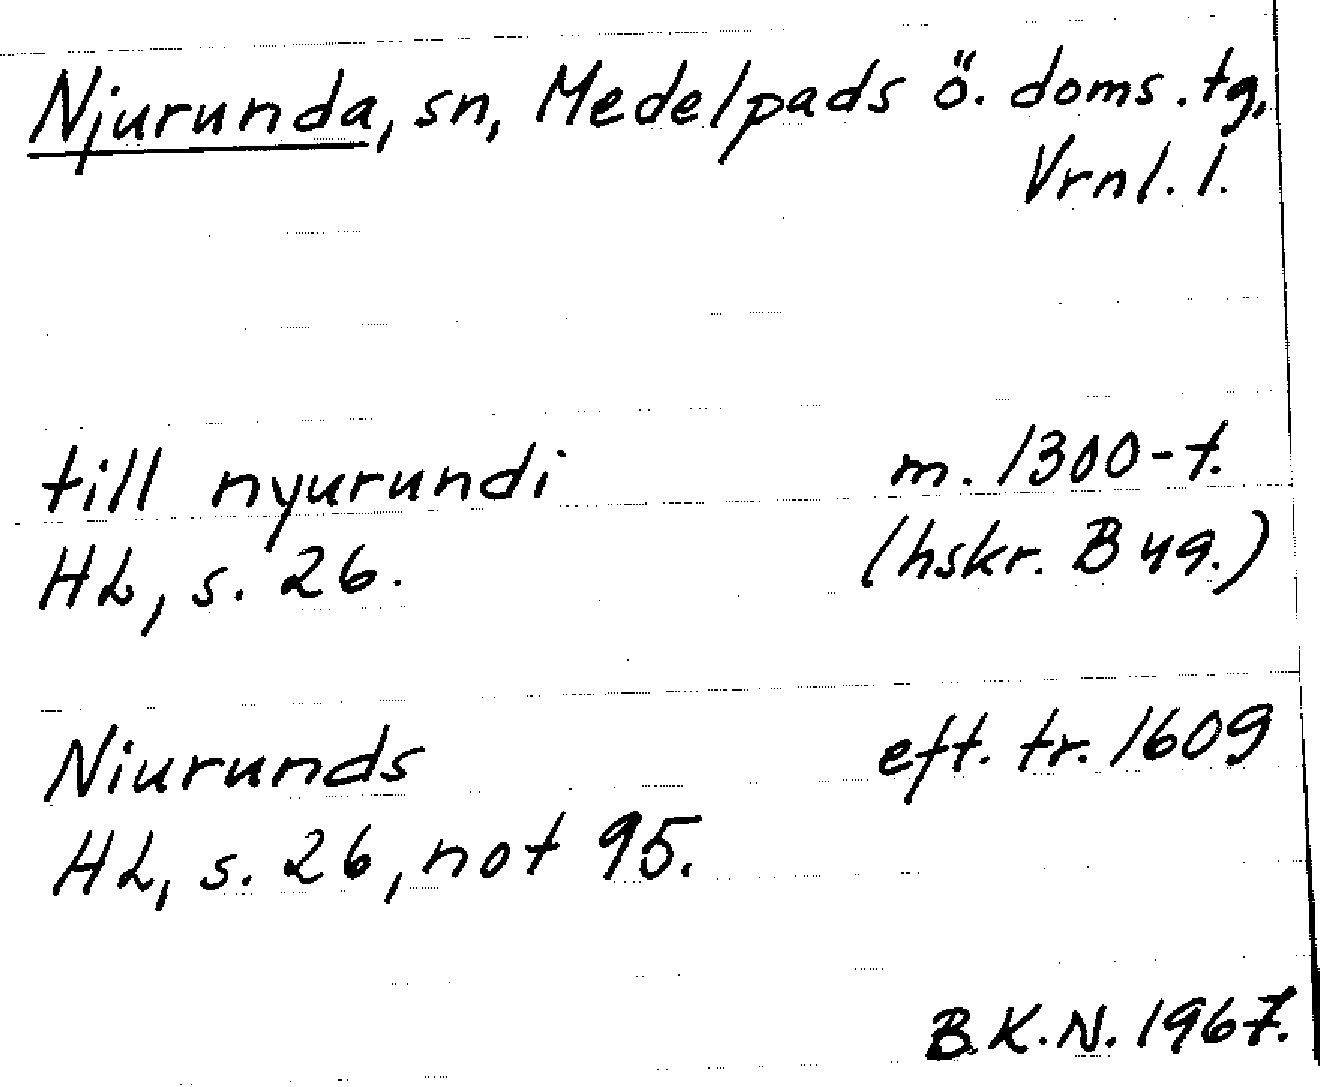 Njurunda, sn, Medelpads ö. doms. tg,
Vrnl. l.
till nyurundi m. 1300-t.
HL, s. 26. (hskr. B 49.)
Niurunds eft. tr. 1609
HL, s. 26, not 95.
B.K.N. 1967.